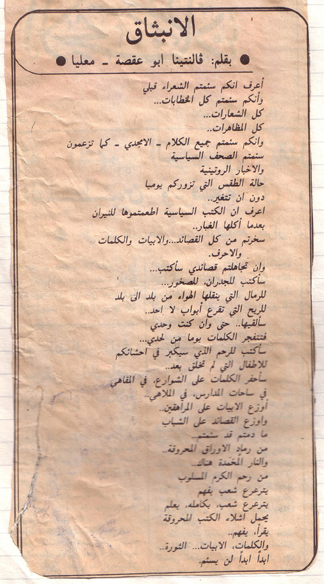 الانبثاق
● بقلم: ڤالنتينا ابو عقصة ـ معليا ●
أعرف انكم سئمتم الشعراء قبلي
وأنكم سئمتم كل الخطابات...
كل الشعارات...
كل المظاهرات..
وانكم سئمتم جميع الكلام ـ الابجدي ـ كما تزعمون
سئمتم الصحف السياسية
والاخبار الروتينية
حالة الطقس التي تزوركم يوميا
دون ان تتغير..
اعرف ان الكتب السياسية اطعمتموها للنيران
بعدما أكلها الغبار..
سخرتم من كل القصائد...والابيات والكلمات
والاحرف.
وإن تجاهلتم قصائدي سأكتب...
سأكتب للجدران، للصخور...
للرمال التي ينقلها الهواء من بلد الى بلد
للريح التي تقرع أبواب لا احد..
سألقيها.. حتى وأن كنت وحدي
فتتفجر الكلمات يوما من لحدي...
سأكتب للرحم الذي سيكبر في احشائكم
للاطفال التي لم تخلق بعد..
سأحفر الكلمات على الشوارع، في المقاهي
في ساحات المدارس، في الملاهي.
أوزع الابيات على المراهقين.
واوزع القصائد على الشباب
ما دمتم قد سئمتم..
من رماد الاوراق المحروقة..
والنار المخمدة هناك..
من رحم الكرم المسلوب
يترعرع شعب يفهم
يترعرع شعب، بكامله، يعلم
يحمل اشلاء الكتب المحروقة
يقرأ، يفهم..
والكلمات، الابيات... الثورة..
ابدأ ابدأ لن يسئم.